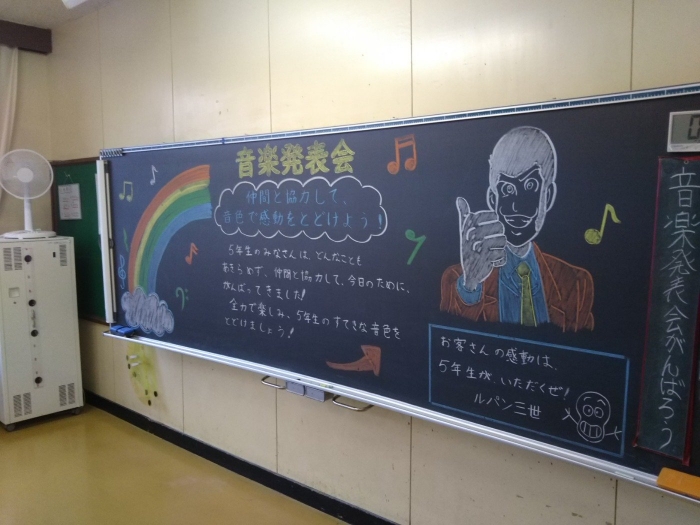 音楽発表会
仲間と協力して、
音色で感動をとどけよう!
5年生のみなさんは、どんなことも
あきらめず、仲間と協力して、今日のために、
がんばってきました!
全力で楽しみ、5年生のすてきな音色を
とどけましょう!
お客さんの感動は、
5年生が、いただくぜ!
ルパン三世
音楽発表会がんばろう